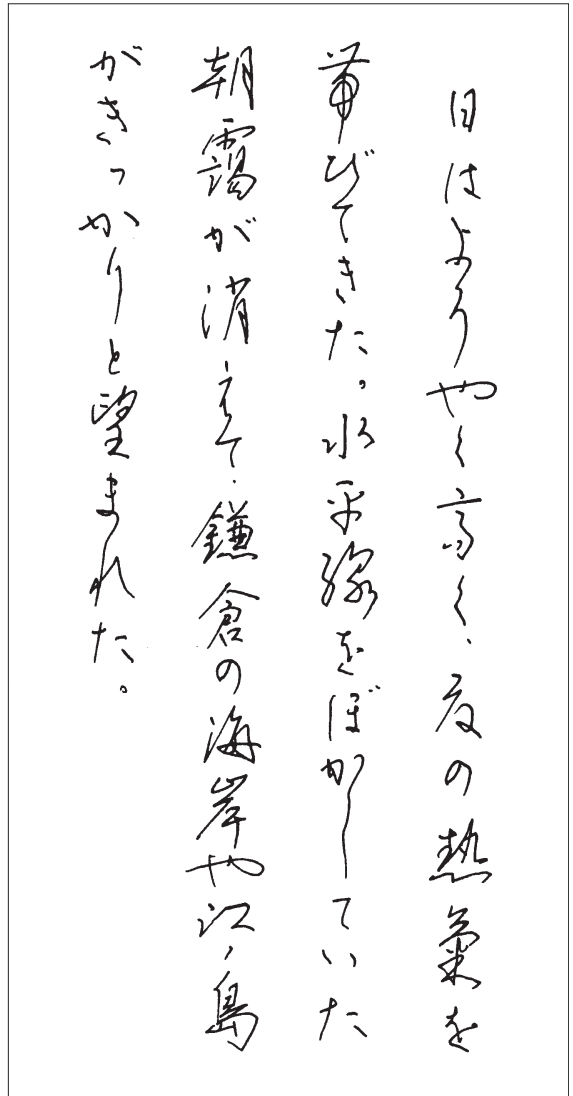 日はようやく高く、夏の熱氣を
帯びてきた。水平線をぼかしていた
朝靄が消えて、鎌倉の海岸や江ノ島
がきっかりと望まれた。